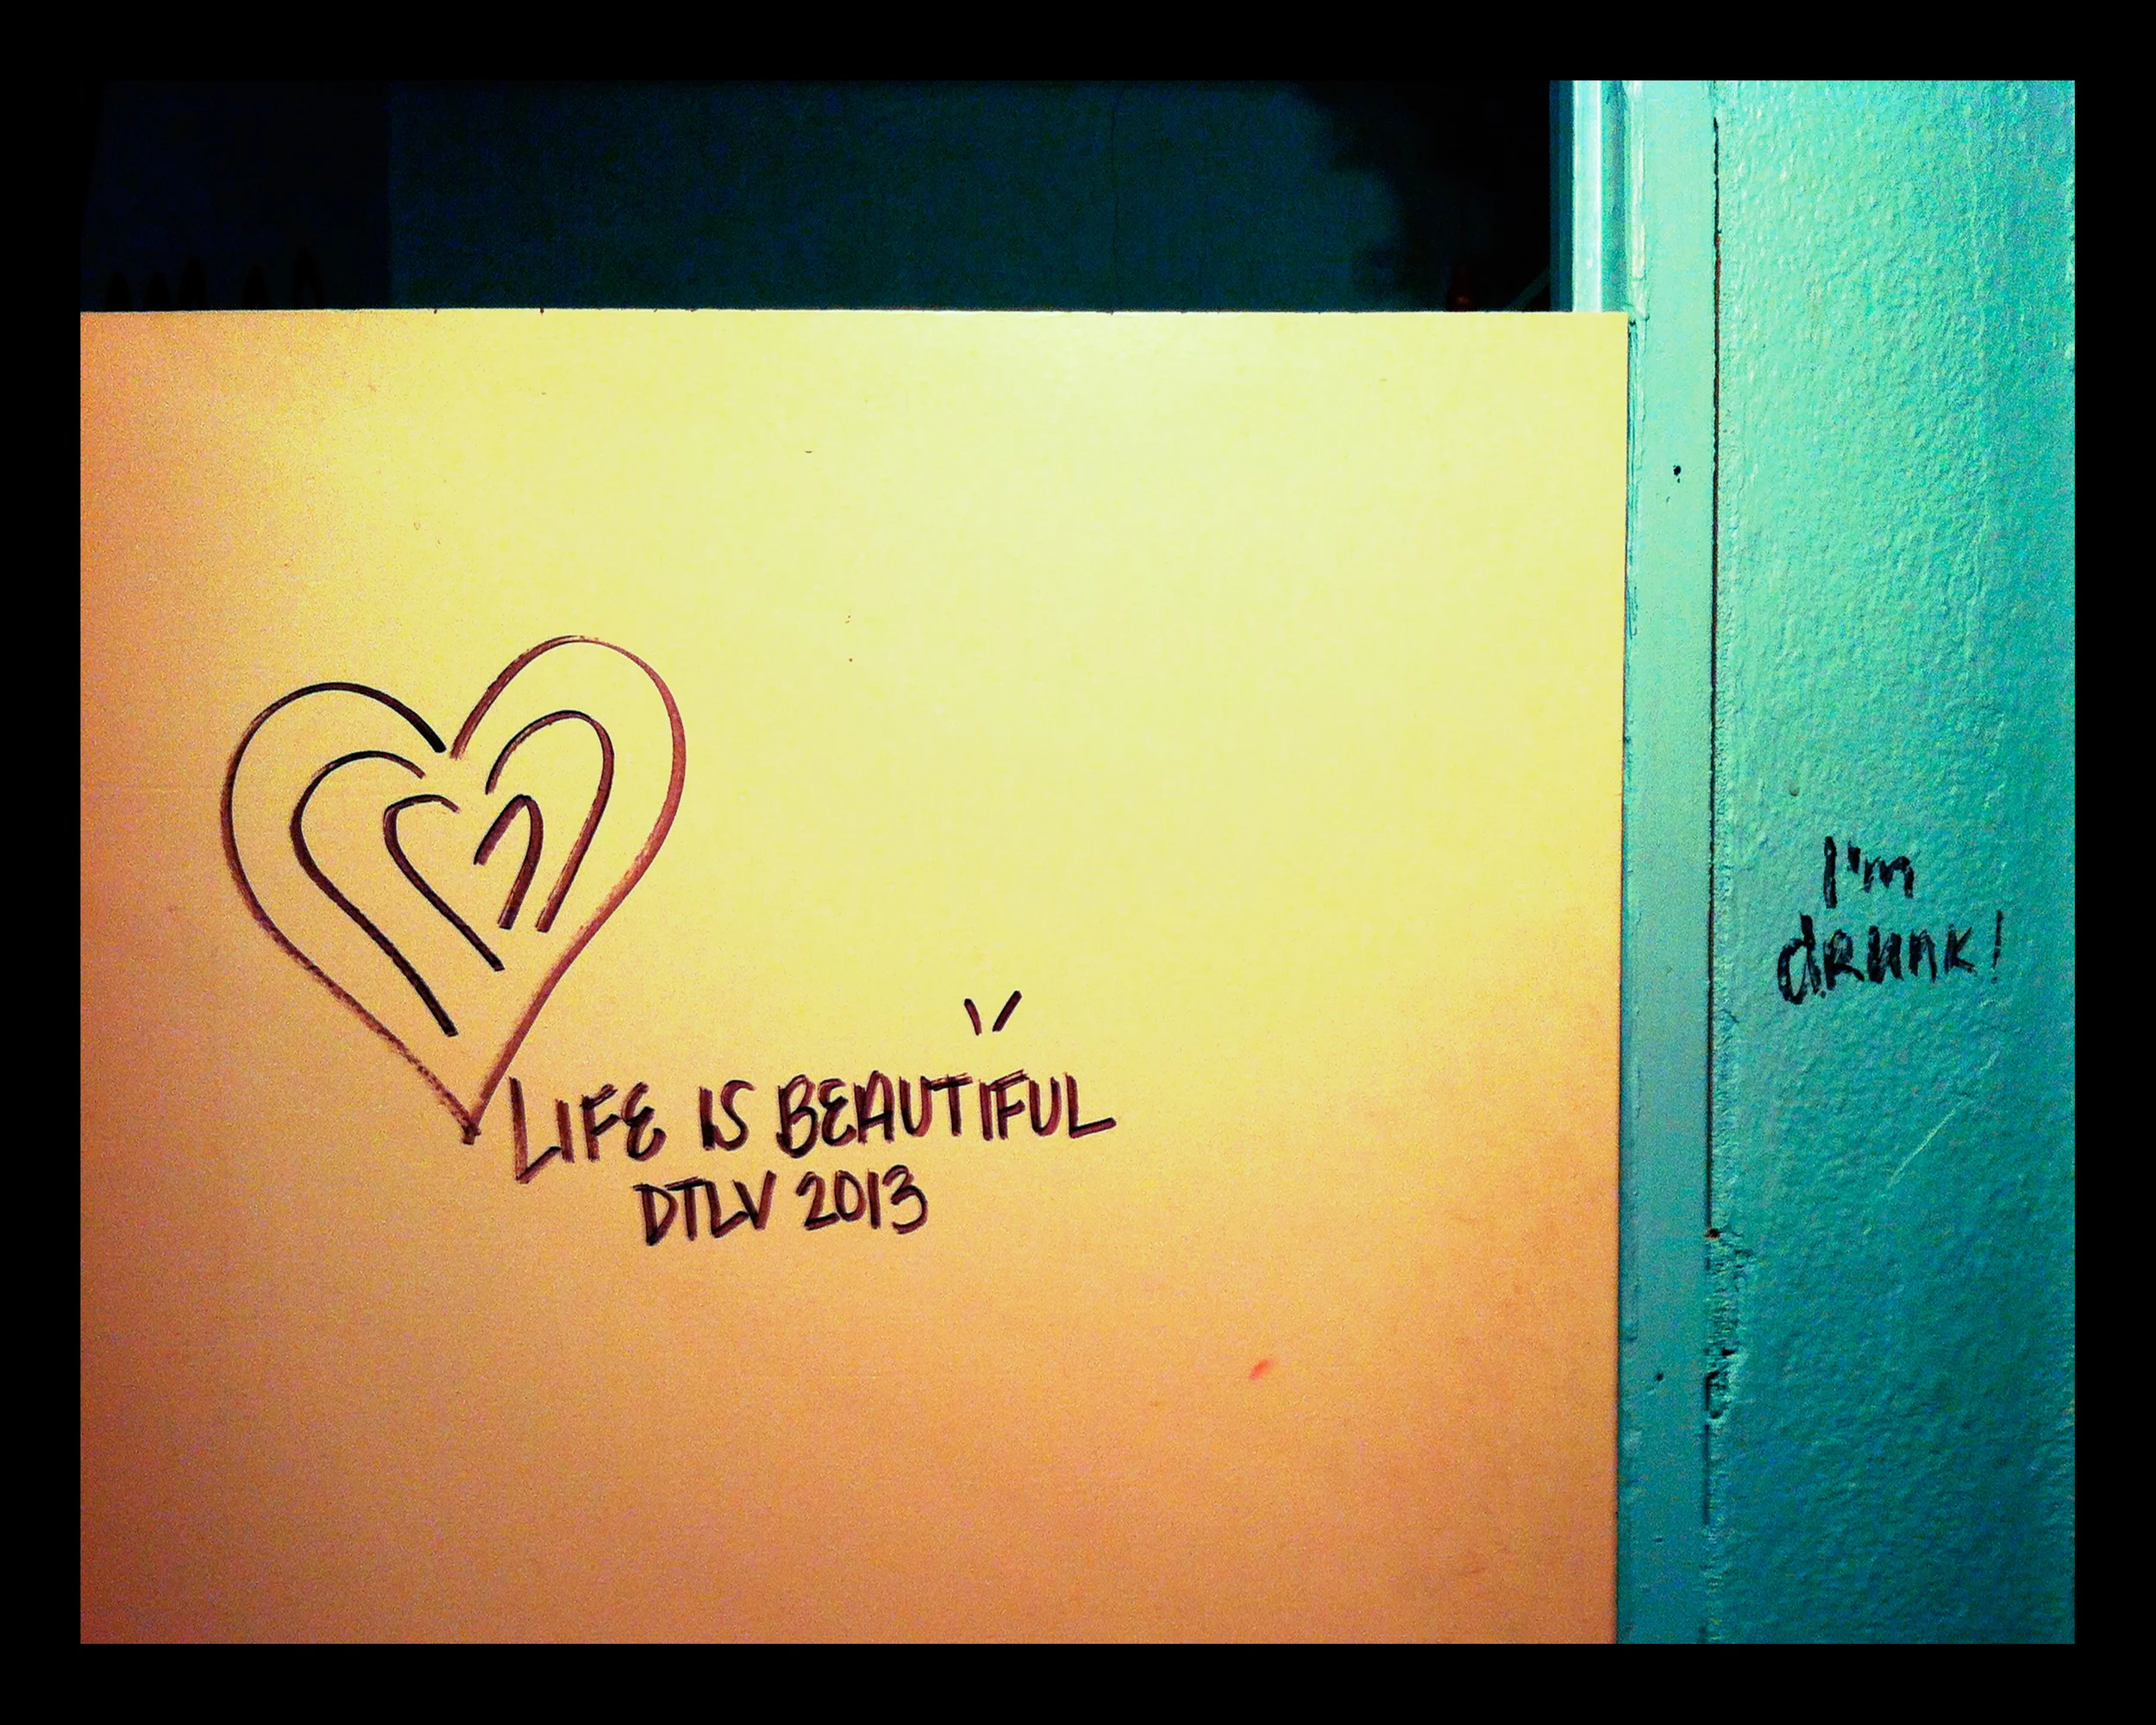 LIFE IS BEAUTIFUL
DTLV 2013
I'm
dRunk!